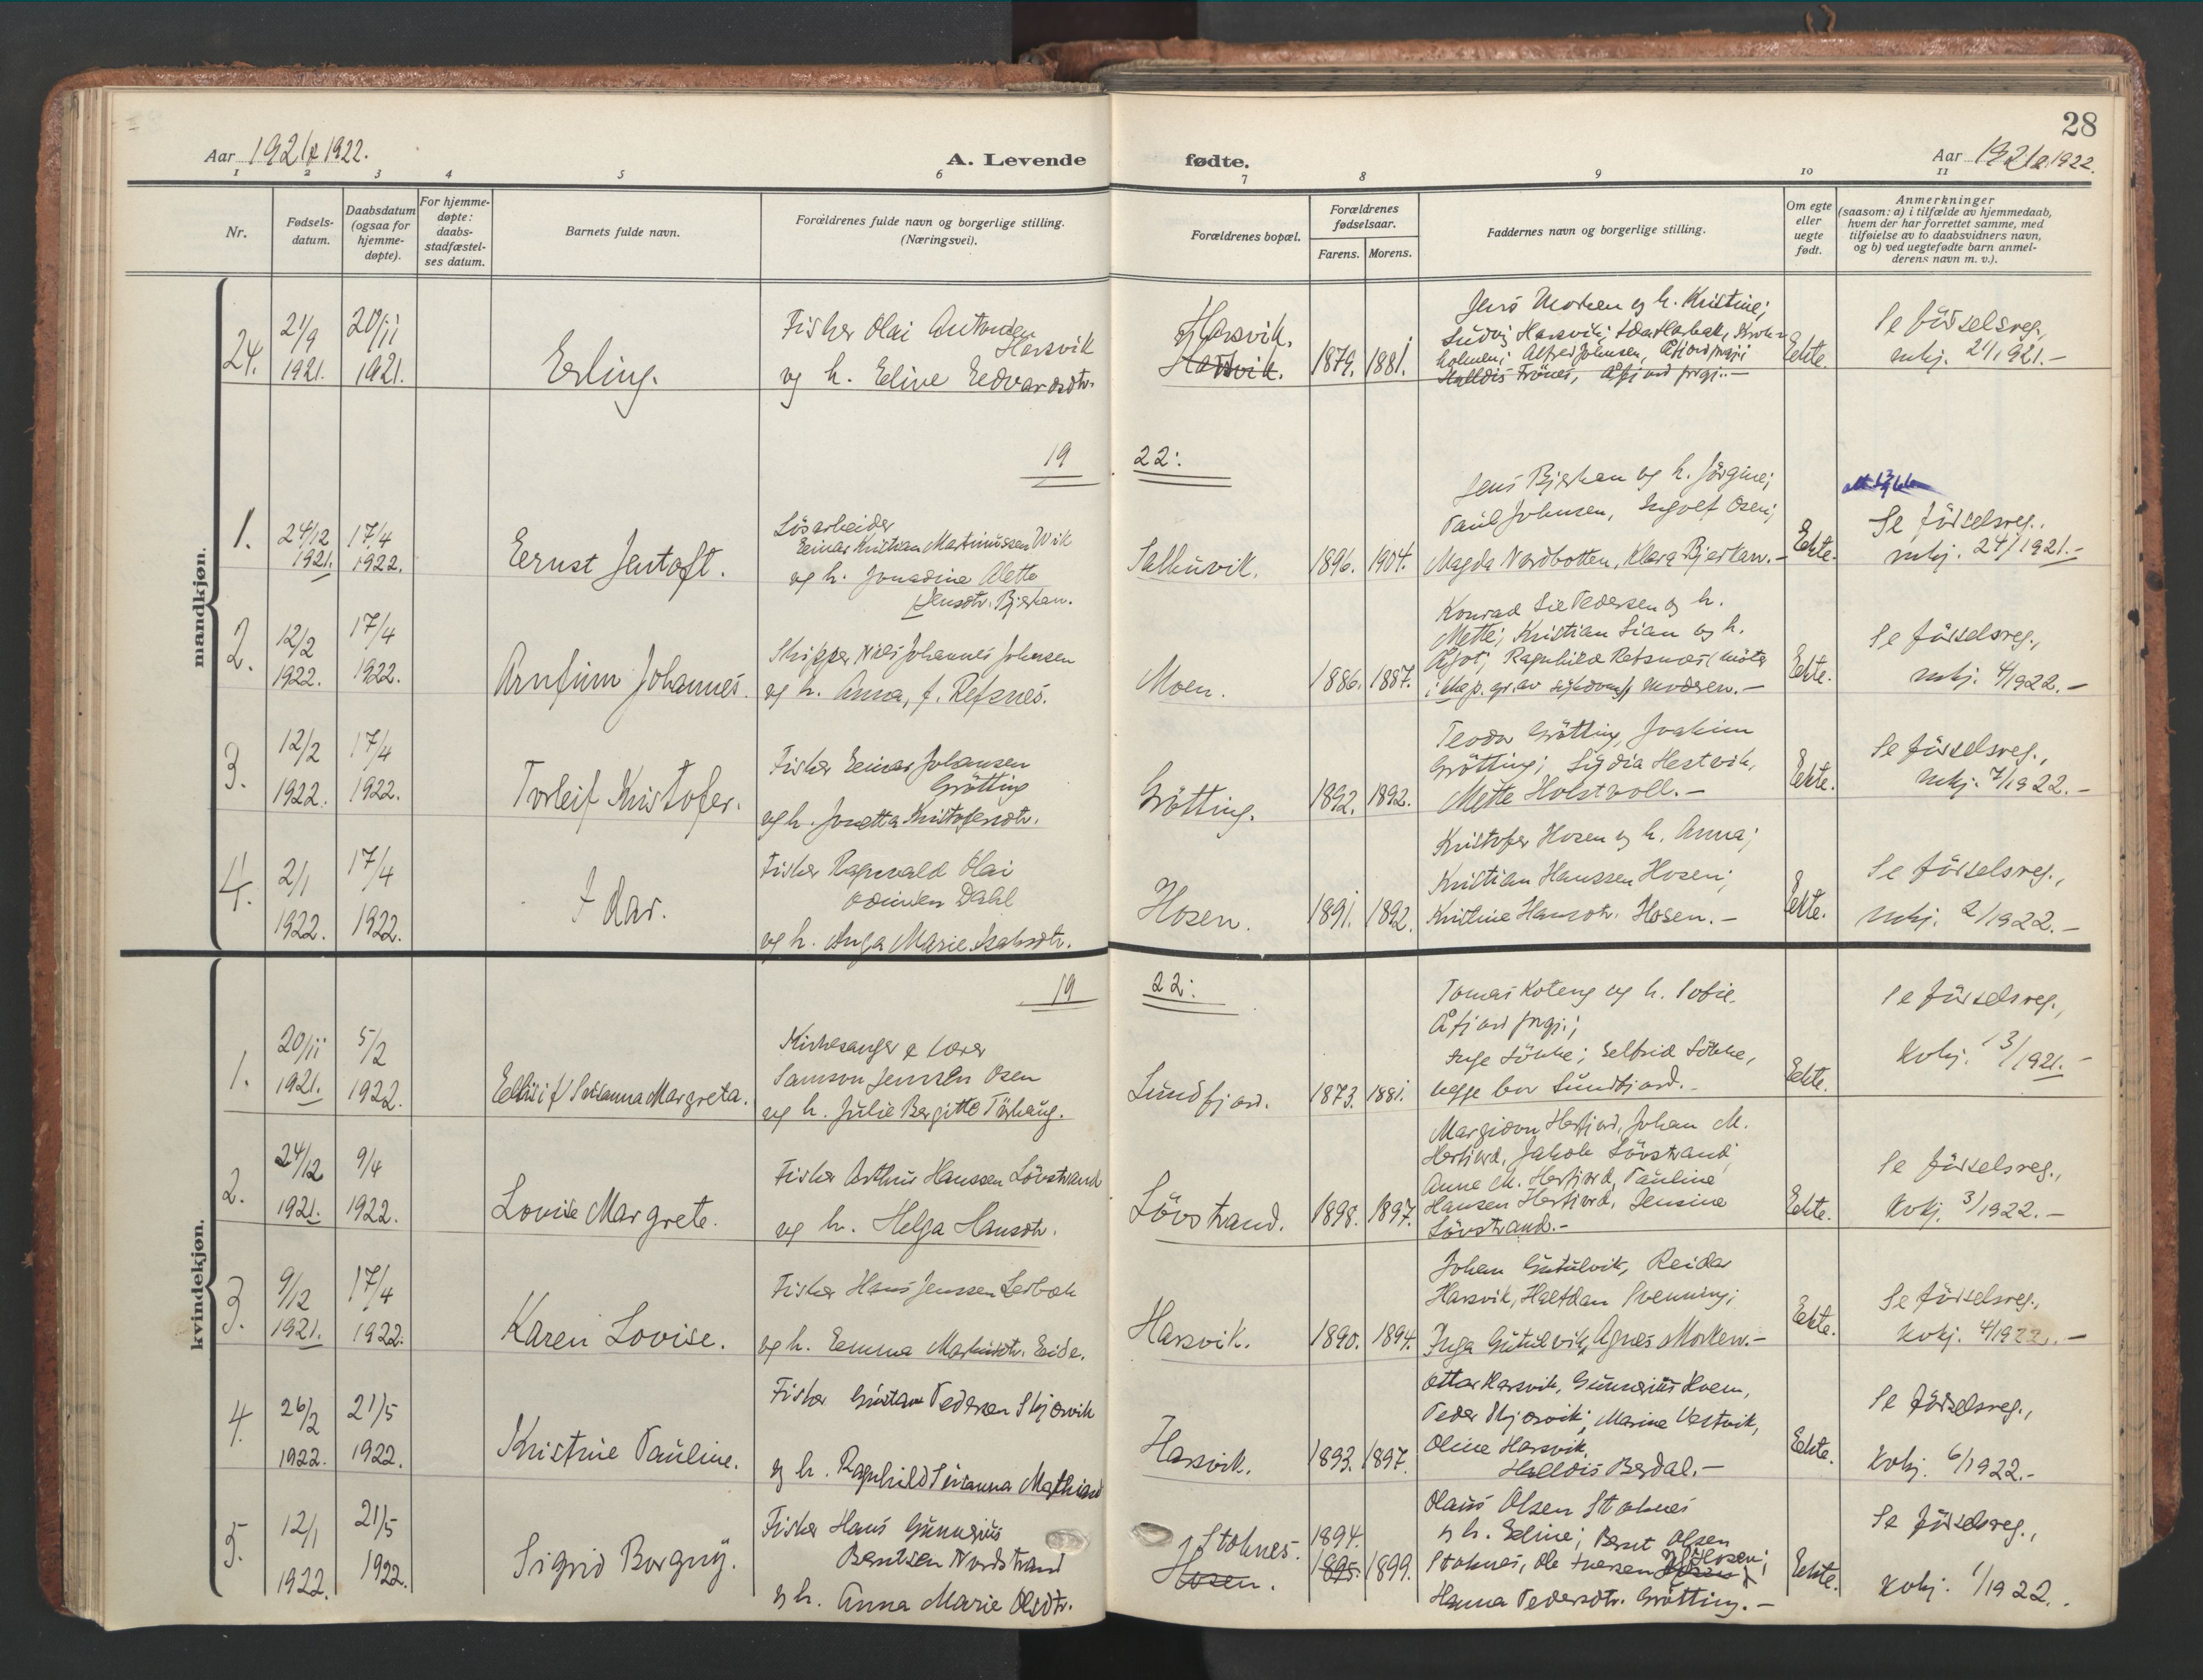 28
Aar 1921 & 1922.
A. Levende
fødte.
Aar 1921 & 1922.
1 2 3 4 5 6 7 8 9 10 11
Nr.
Fødsels-
datum.
Daabsdatum
(ogsaa for
hjemme-
døpte).
For hjemme-
døpte:
daabs-
stadfæstel-
ses datum.
Barnets fulde navn.
Forældrenes fulde navn og borgerlige stilling.
(Næringsvei).
Forældrenes bopæl.
Forældrenes
fødselsaar.
Farens. Morens.
Faddernes navn og borgerlige stilling.
Om egte
eller
uegte
født.
Anmerkninger
(saasom: a) i tilfælde av hjemmedaab,
hvem der har forrettet samme, med
tilføielse av to daabsvidners navn,
og b) ved uegtefødte barn anmel-
derens navn m. v.).
mandkjøn.
24.
21/9
1921.
20/11
1921.
Erling.
Fisker Olai Antonsen
Harsvik
og h. Eline Edvardsdtr.
Harsvik.
Harsvik.
1879. 1881.
Jens Morken og h. Kristine;
Ludvig Harsvik;
holmen; Alfred Johnsen, Åfjord prgj;
Halldis Frönes, Åfjord prgj. —
Ekte.
Se födselsreg.,
mkj. 21/1921. —
19 22:
1.
24/12
1921.
17/4
1922.
Ernst Jentoft.
Lösarbeider
Einar Kristian Martinussen Vik
og h. Jonadine Alette
Jensdtr. Bjerkan.
Sætervik.
1896. 1904.
Jens Bjerkan og h. Jörgine;
Paul Johnsen, Ingolf Osen;
Magda Nordbotten, Klara Bjerkan. —
Ekte.
Se födselsreg.
mkj. 24/1921. —
2.
12/2
1922.
17/4
1922.
Arnfinn Johannes.
Skipper Nils Johannes Johnsen
og h. Anna, f. Refsnes.
Moen.
1886. 1887.
Konrad Lie Pedersen og h.
Mette; Kristian Sian og h.
Ågot; Ragnhild Refsnes (mötte
i kke p. gr. av sykdom), moderen. —
Ekte.
Se födselsreg.,
mkj. 4/1922. —
3.
12/2
1922.
17/4
1922.
Torleif Kristofer.
Fisker Einar Johansen
Grötting
og h. Jonetta Kristofersdtr.
Grötting.
1892. 1892.
Teodor Grötting, Joakim
Grötting; Lydia Hestvik,
Mette Holstvoll. —
Ekte.
Se födselsreg.,
mkj. 7/1922. —
4.
2/1
1922.
17/4
1922.
Idar.
Fisker Ragnvald Olai
Odinsen Dahl
og h. Inga Marie Isaksdtr.
Hosen.
1891. 1892.
Kristofer Hosen og h. Anna;
Kristian Hanssen Hosen;
Kristine Hansdtr. Hosen. —
Ekte.
Se födselsreg.,
mkj. 2/1922. —
kvindekjøn.
19 22:
1.
20/11
1921.
5/2
1922.
Ellbjörg Susanna Margreta.
Kirkesanger & lærer
Samson Jensen Osen
og h. Julie Bergitte Tårhaug.
Sundfjord.
1873. 1881.
Tomas Koteng og h. Sofie
Åfjord prgj.;
Inge Lökke; Selfrid Lökke,
begge bor Sundfjord. —
Ekte.
Se födselsreg.,
Kvkj. 13/1921. —
2.
24/12
1921.
9/4
1922.
Lovise Margrete.
Fisker Arthur Hanssen Lövstrand
og h. Helga Hansdtr.
Lövstrand.
1898. 1897.
Margidon Herfjord, Johan M.
Herfjord, Jakob Lövstrand;
Anne M. Herfjord, Pauline
Hansen Herfjord, Jensine
Lövstrand. —
Ekte.
Se födselsreg.,
Kvkj. 3/1922. —
3.
9/12
1921.
17/4
1922.
Karen Lovise.
Fisker Hans Jenssen Lerbak
og h. Emma Martinsdtr. Eide.
Harsvik.
1890. 1894.
Johan Gutulvik, Reidar
Harsvik, Halfdan Svenning;
Inga Gutulvik, Agnes Morken. —
Ekte.
Se födselsreg.,
Kvkj. 4/1922. —
4.
26/2
1922.
21/5
1922.
Kristine Pauline.
Fisker Gustav Pedersen Skjervik
og h. Ragnhild Susanna Mathisd
Harsvik.
1893. 1897.
Ottar Harsvik, Gunnerius Hoem,
Peder Skjervik; Marine Vestvik,
Oline Harsvik,
Halldis Berdal. —
Ekte.
Se födselsreg.,
Kvkj. 6/1922. —
5.
12/1
1922.
21/5
1922.
Sigrid Borgny.
Fisker Hans Gunnerius
Berntsen Nordstrand
og h. Anna Marie Olsdtr.
Stoknes.
Hosen.
1894.
1895. 1899.
Olaus Olsen Stoknes
og h. Eline; Bernt Olsen
Stoknes, Ole Iversen Hosen;
Hanna Pedersdtr. Grötting. —
Ekte.
Se födselsreg.,
Kvkj. 1/1922.